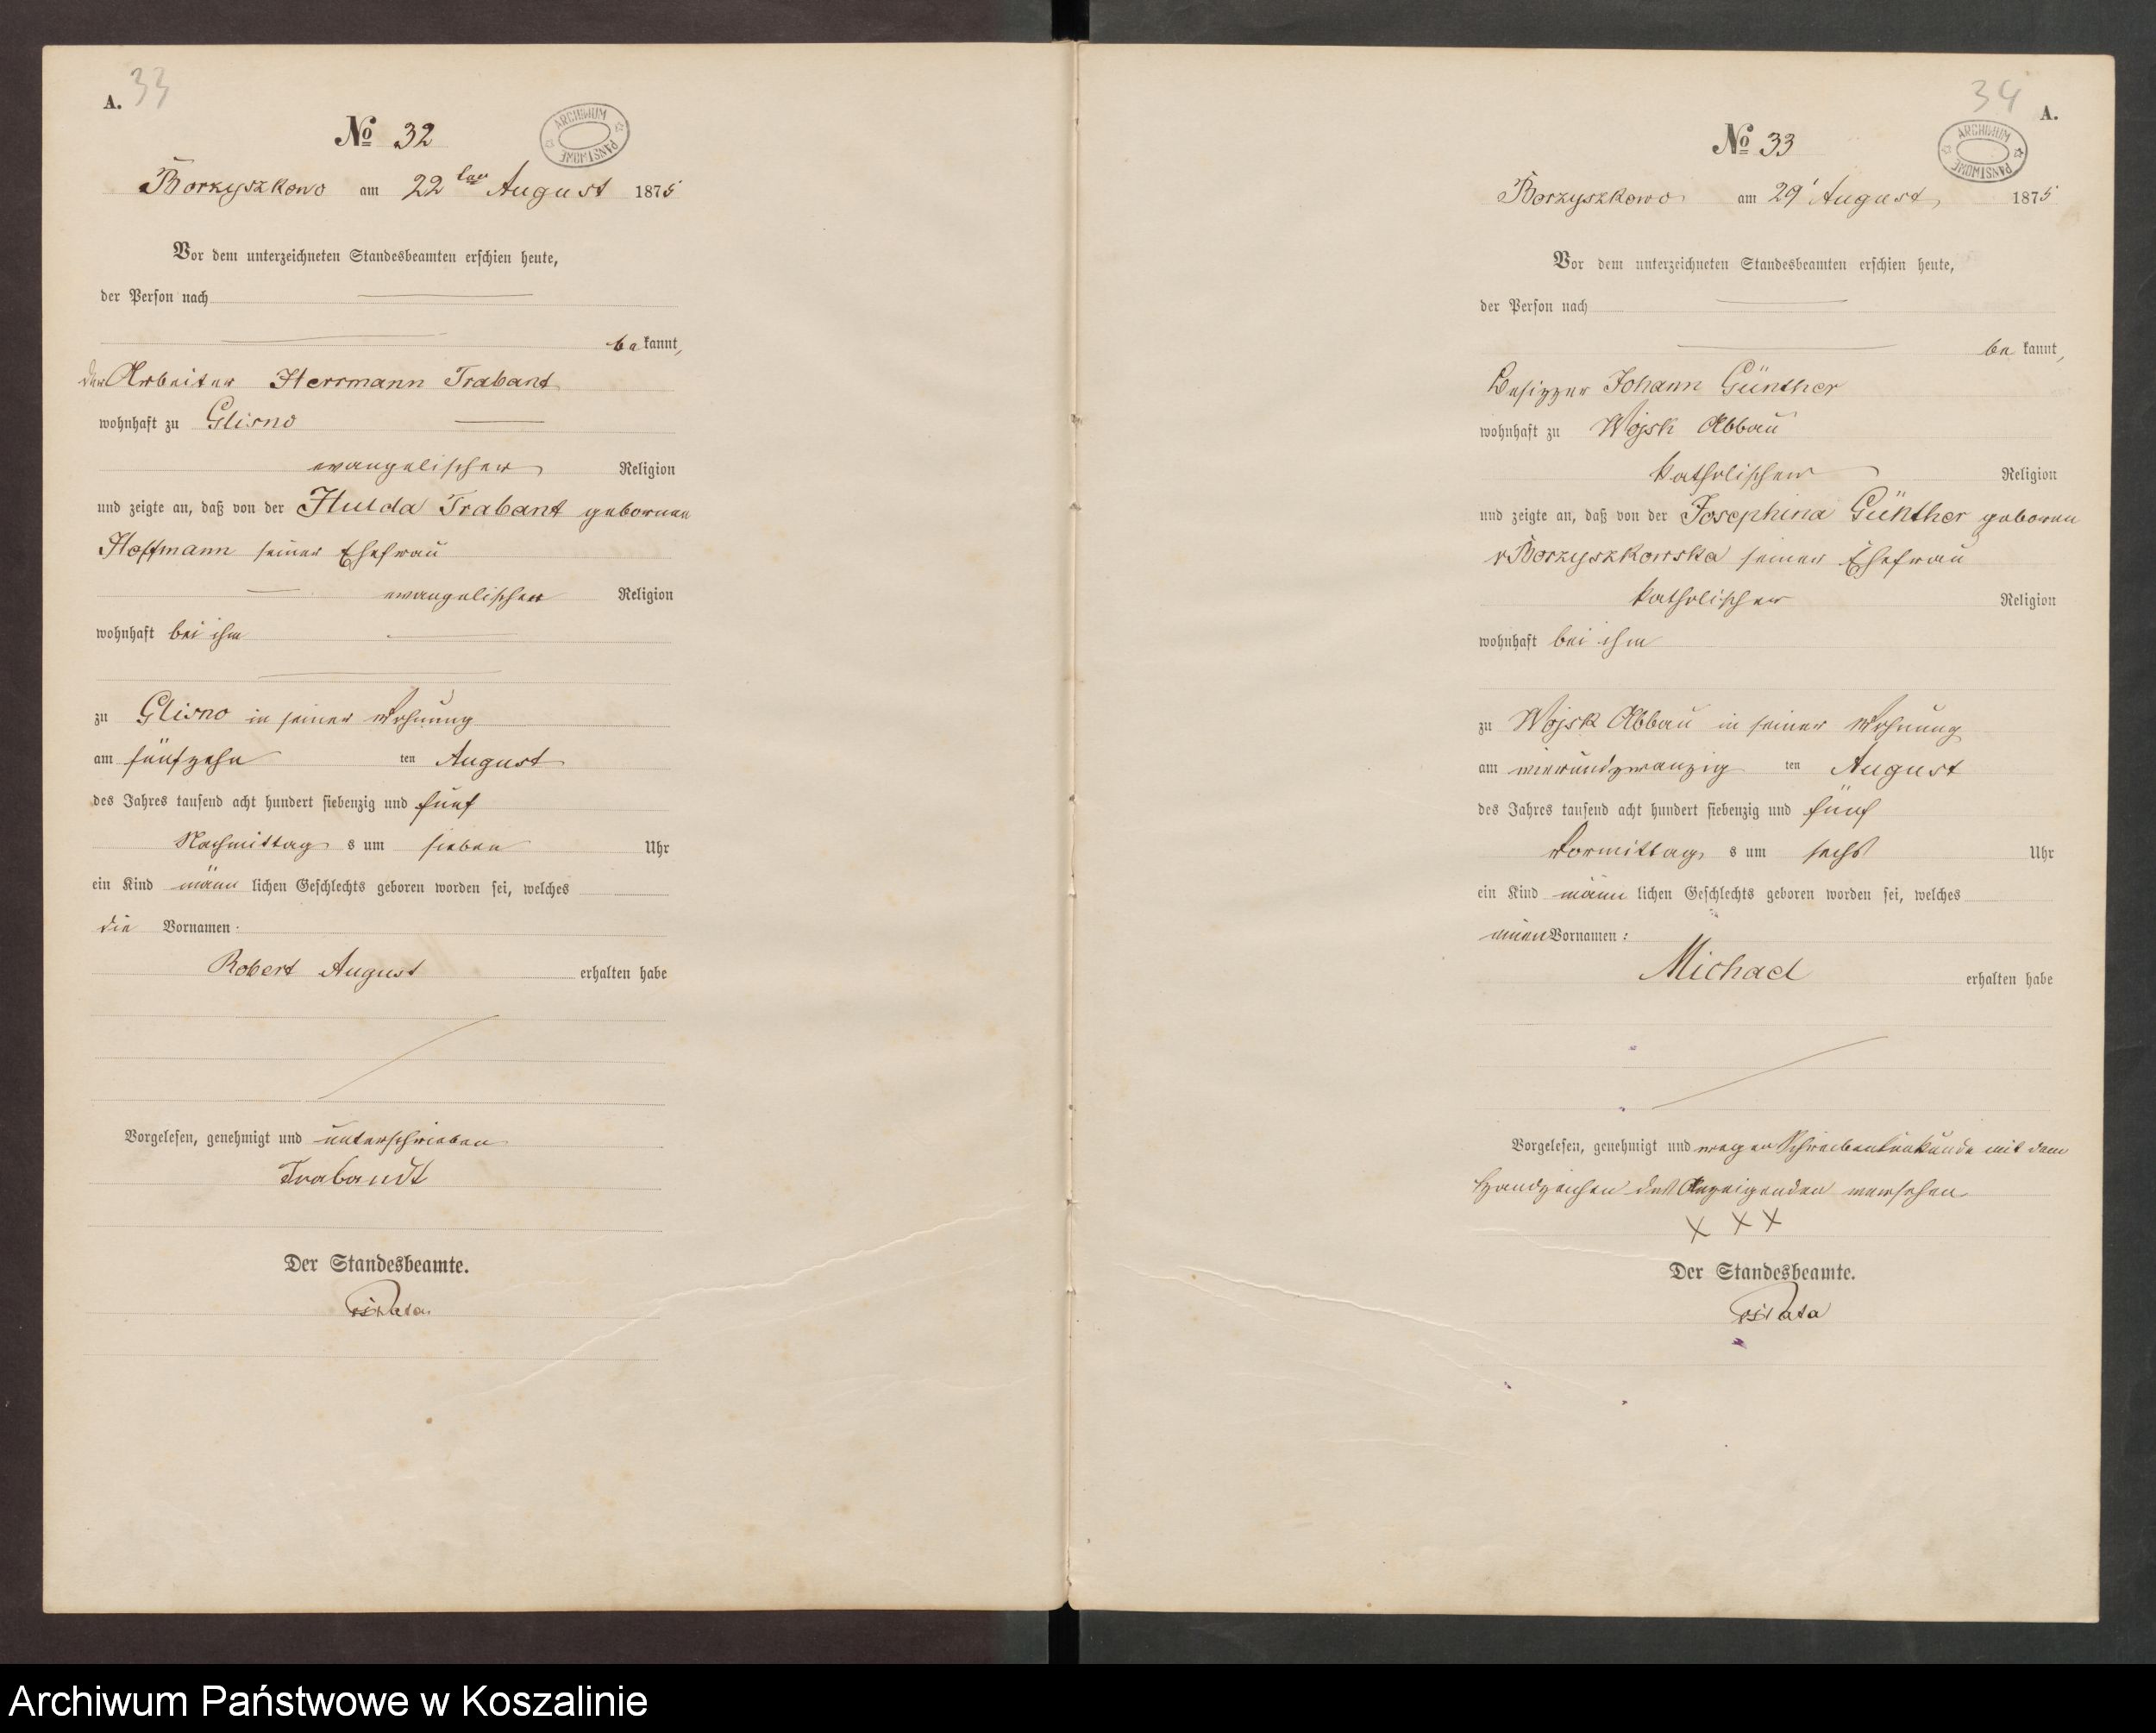 A. 33
№ 32
ARCHIWUM PAŃSTWOWE
Borzyszkowo am 22ten August 1875
Vor dem unterzeichneten Standesbeamten erschien heute,
der Person nach
bekannt,
der Arbeiter Herrmann Trabant
wohnhaft zu Glisno
evangelischer Religion
und zeigte an, daß von der Hulda Trabant geborenen
Hoffmann seiner Ehefrau
evangelischer Religion
wohnhaft bei ihm
zu Glisno in seiner Wohnung
am fünfzehn ten August
des Jahres tausend acht hundert siebenzig und fünf
Nachmittag s um sieben Uhr
ein Kind männ lichen Geschlechts geboren worden sei, welches
die Vornamen:
Robert August erhalten habe
Vorgelesen, genehmigt und unterschrieben
Trabandt
Der Standesbeamte.
34 A.
№ 33
ARCHIWUM PAŃSTWOWE
Borzyszkowo am 29' August 1875
Vor dem unterzeichneten Standesbeamten erschien heute,
der Person nach
bekannt,
Besitzer Johann Günther
wohnhaft zu Wojsk Abbau
katholischer Religion
und zeigte an, daß von der Josephina Günther geboren
v Borzyszkowska seiner Ehefrau
katholischer Religion
wohnhaft bei ihm
zu Wojsk Abbau in seiner Wohnung
am vierundzwanzig ten August
des Jahres tausend acht hundert siebenzig und fünf
Vormittag s um sechs Uhr
ein Kind männ lichen Geschlechts geboren worden sei, welches
einen Vornamen:
Michael erhalten habe
Vorgelesen, genehmigt und wegen Schreibensunkunde mit dem
Handzeichen des Anzeigenden versehen
X X X
Der Standesbeamte.
Archiwum Państwowe w Koszalinie